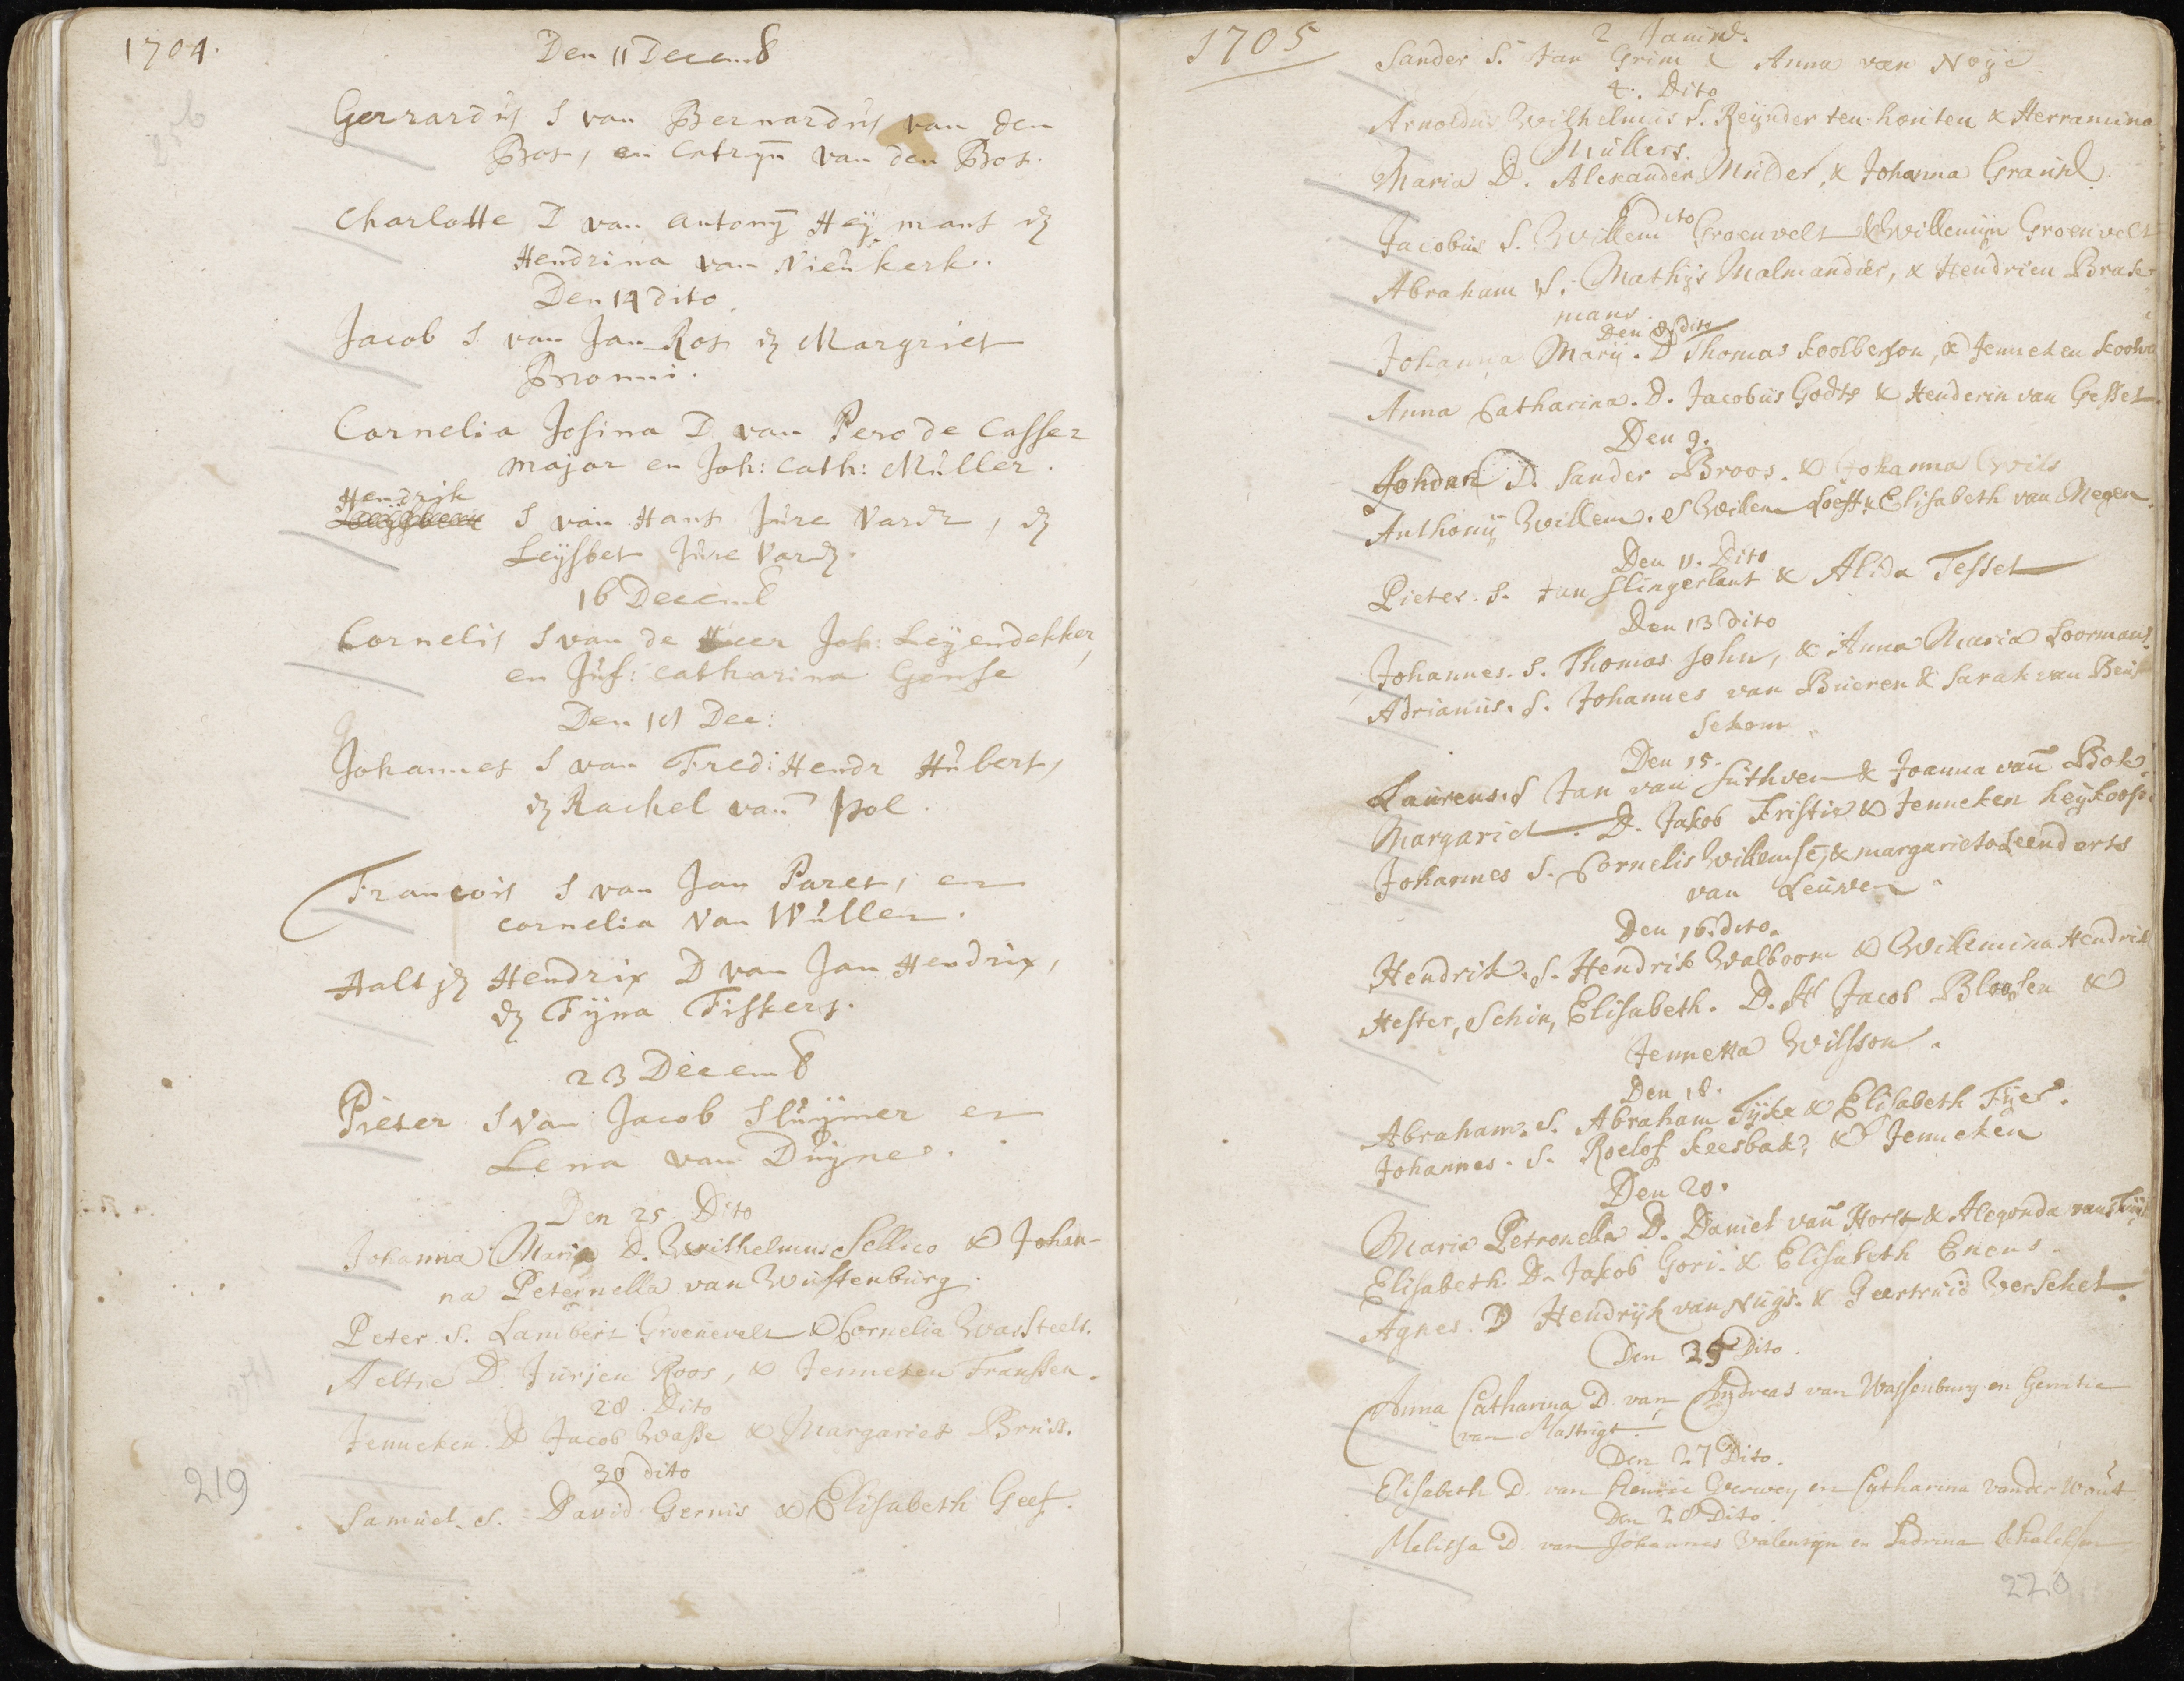 1704.
Den 11 Decemb
Gerrardus S van Bernardus van den
Bos, en Catryn van den Bos.
Charlotte D van Antony Heymans &
Hendrina van Nieukerk.
Den 14 dito
Jacob S van Jan Ros & Margriet
Cornelia Josina D van Pero de Casser
major en Joh: Cath: Muller.
Hendrik
S van Hans Jure Vardr, &
Leysbet Jure Vard.
16 Decemb
Cornelis S van de Heer Joh: Leyendekker,
en Juf: Catharina Gense
Dec:
Johannes S van Fred: Hendr Hubert,
& Rachel van Pol.
Francois S van Jan Paret, en
Cornelia Van Wullen.
Aaltje Hendrix D van Jan Hendrix,
& Fijna Fiskers.
23 Decemb
Pieter S van Jacob Sluymer en
Lena van Duynes.
Den 25 Dito
Johanna Maria D. Wilhelmus Sellico & Johan-
na Peternella van Wustenburg.
Peter S. Lambert Groenevelt & Cornelia Wassteels.
Aeltie D. Jurjen Roos, & Jenneken Franssen.
28 Dito
Jenneken D Jacob Wasse & Margariet Bruss.
30 dito
Samuel. S. David Gernis & Elisabeth Geef.
219
1705
2 Januarij.
Sander S. Jan Grim & Anna van Noye
4. Dito
Arnoldus Wilhelmus S. Reynder ten houten & Herramina
Mullers.
Maria D. Alexander Mulder, & Johanna
6 dito
Jacobus S. Willem Groenvelt & Willemijn Groenvelt
Abraham S. Mathijs Malmandier, & Hendrien Brake-
mans.
Den 8 dito
Johanna Marij. D Thomas Koolberson, & Jenneken
Anna Catharina. D. Jacobus Godts & Henderin van Gessel.
Den 9.
Johdan D. Sander Broos. & Johanna Crois
Anthonij Willem. S Willem Loeff & Elisabeth van Megen.
Den 11. Dito
Pieter. S. Jan Slingerlant & Alida Tessel
Den 13 Dito
Johannes. S. Thomas John, & Anna Maria Loormans.
Adrianus. S. Johannes van Bueren & Sarah van
sekom
Den 15.
Laurens. S Jan van Suthven & Joanna van Bok.
Margariet. D. Jakob Kristie & Jenneken heykoop.
Johannes S. Cornelis Willemse, & margarieta Leenderts
van Leuwen.
Den 16. dito.
Hendrik. S. Hendrik Walboom & Willemina Hendrik
Hester, Schin, Elisabeth. D. Jacob Bloosen &
Jennetta Willson.
Den 18.
Abraham. S. Abraham Fyke & Elisabeth Fyer.
Johannes. S. Roelof Keesbak, & Jenneken
Den 20.
Maria Petronella D. Daniel van Horst & Alegonda van
Elisabeth. D. Jakob Gori. & Elisabeth Enens.
Agnes. D Hendrijk van Nuys. & Geertruid Versekel.
Den 25 Dito.
Anna Catharina D. van Andreas van Wassenburg en Gerritie
van Mastrigt.
Den 27 Dito.
Elisabeth D. van Verwey en Catharina vander Wout
Den 28 Dito.
Melissa D. van Johannes Valensijn en
220